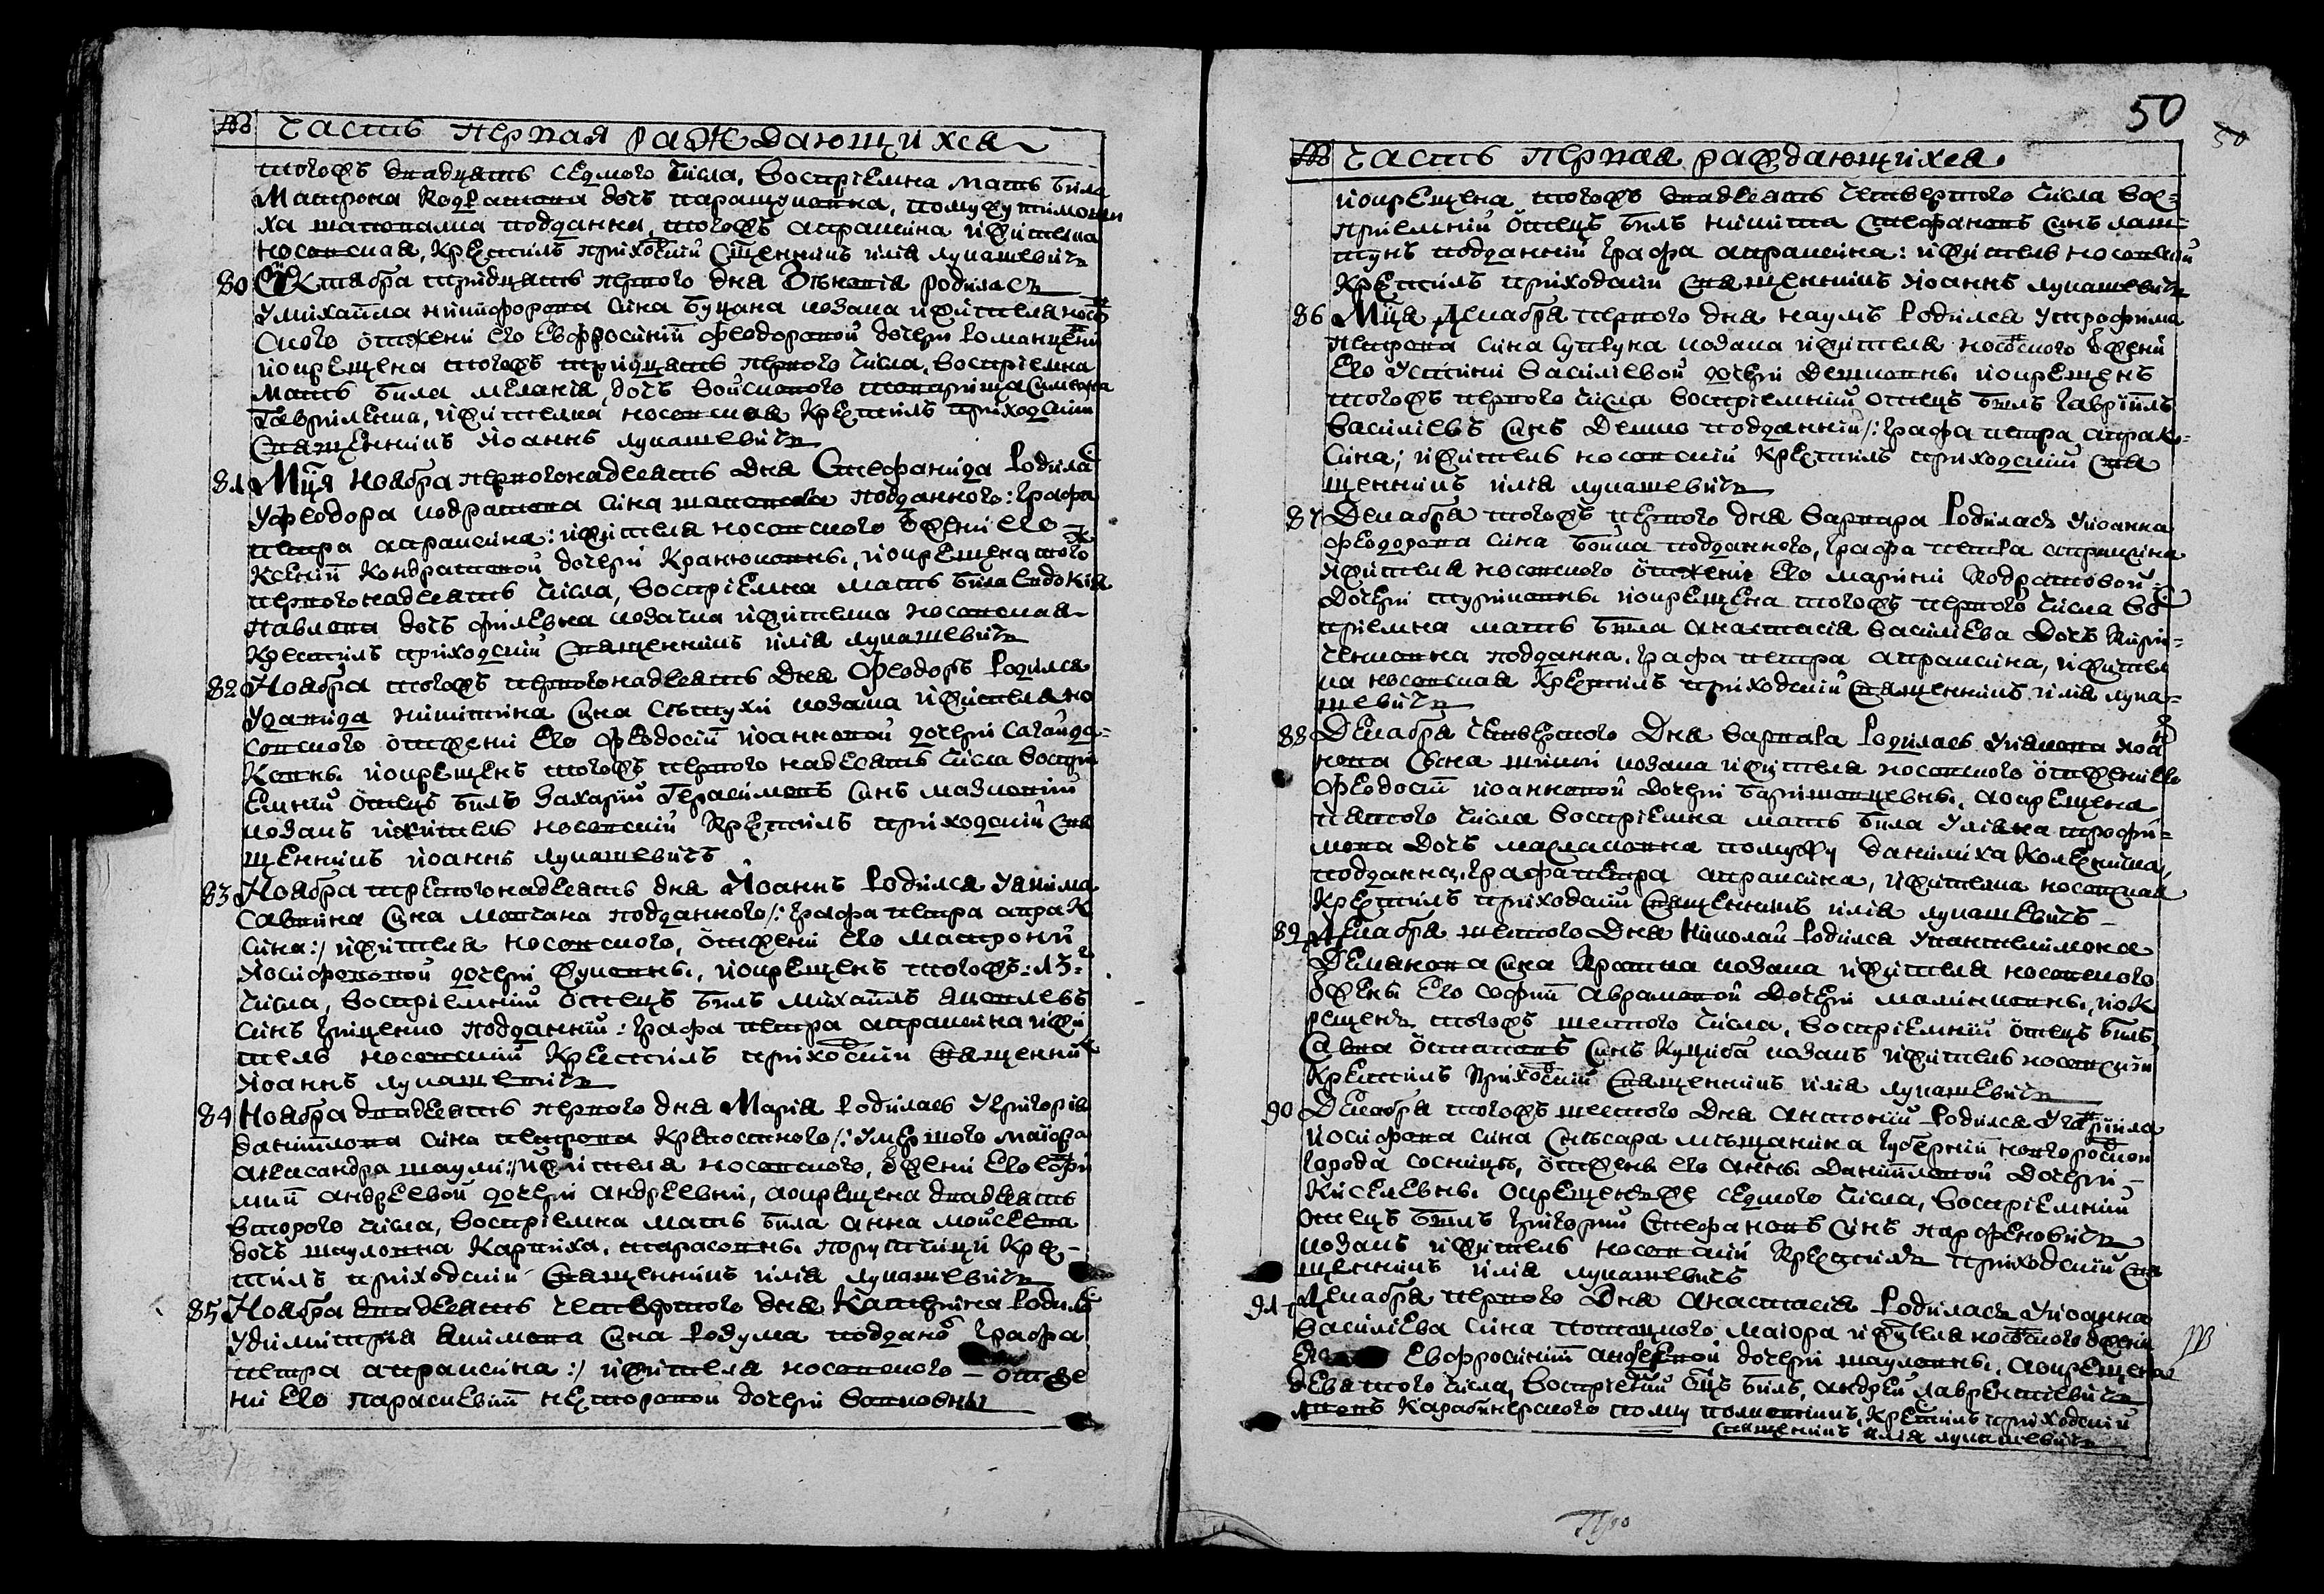 № Часть первая раждающихся
тогожъ двадцать седмого числа, воспріемна мать била
Матрона Кодратова дочь паращуковна, помужу тимошы
ха шаповалиа подданка, тогожъ апраксина жителка
носовская, крестилъ приходскій священникъ илія лукашевичъ
80 Октабра тридцать первого дня Овгенія родилась
Умихаила никифорова сина буцана козака жителя носов
ского отжени его евфросиніи феодоровой дочери романцевни
иокрещена тогожъ тридцать первого числа, воспріемна
мать била меланія, дочь войскового товарища
Гавриленка, жителка носовская крестилъ приходскій
священникъ Иоаннъ лукашевичъ
81 Мця Ноября первогонадесять дня Стефанида родила
уфеодора кодратова сина шаповала подданного: графа
петра апраксина: жителя носовского ожени его
Ксеніи Кондратовой дочери Кранюковны, иокрещена того
первогонадесять числа, воспріемна мать била евдокія
Павлова дочь филевна козачка жителка носовская
крестилъ приходскій священникъ илія лукашевичъ
82 Ноября тогожъ первогонадесять дня Феодоръ родился
Уданида никитина сина козака жителя но
совского отжени его феодосіи иоанновой дочери сагайда
ковны иокрещенъ тогожъ первого надесять числа воспри
емній отецъ билъ Захарій Герасимовъ синъ
козакъ жителъ носовскій крестилъ приходскій свя
щенникъ иоаннъ лукашевичъ
83 Ноября третогонадесять дня Иоаннъ родился Уакима
Савина сина подданного /: графа петра апрак
сина:/ жителя носовского, отжени его матроний
Иосифововой дочери жуковны, иокрещенъ тогожъ: 13:
числа, воспріемній отецъ билъ михаилъ яковлевъ
синъ грищенко подданній: графа петра апраксина жи
тель носовскій крестилъ приходскій священни
Иоаннъ лукашевичъ
84 Ноября двадесять первого дня Марія родилась Угригорія
даниилова сина петрова крепостного /: умершого маиора
александра шаули:/ жителя носовского, ожени его
андреевой дочери андреевни, аокрещена двадесять
второго числа, воспріемна мать била анна мойсеева
дочь шауловна Карпиха, тарасовны поручици кре
стилъ приходскій священникъ илія лукашевичъ
85 Ноября двадесять четвертого дня Катерина родила
Удимитрія якимова сина родума поддано графа
петра апраксина:/ жителя носовского – отже
ни его параскевіи несторовой дочери Волковны
50
50
№ Часть первая раждающихся
иокрещена тогожъ двадесять четвертого числа вос=
пріемній отецъ билъ никита стефановъ синъ лаш=
тунъ подданній графа апраксина: жителъ носовскій
крестилъ приходскій священникъ Иоаннъ лукашевичъ
86 Мця Декабра первого дня наумъ родился Утрофима
петрова сина козака жителя носовского ожени
его Устини Василіевой дочери Демковны иокрещенъ
тогожъ первого числа воспріемній отецъ билъ гавріилъ
Василіевъ синъ Демко подданній /: графа петра апрак=
сина; жителъ носовскій крестилъ приходскій свя
щенникъ илія лукашевичъ
87 Декабра тогожъ первого дня варвара родилась Уиоанна
феодорова сина бойка подданного, графа петра апраксина
жителя носовского отжени его марини Кодратовой
дочери турчиковны иокрещена тогожъ первого числа во
пріемна мать била анастасія василіева дочь Кири=
ченковна подданка, графа петра апраксина, жител
ка носовская крестилъ приходскій священникъ илія лука=
шевичъ
88 Декабра четвертого дня варвара родилась Уіакова иоа
нова сина козака жителя носовского отжени его
феодосіи иоанновой дочери аокрещена
пятого числа воспріемна мать била уліяна трофи=
мова дочь помужу данилиха Колесника,
подданка, графа петра апраксина, жителка носовская
крестилъ приходскій священникъ илія лукашевичъ –
89 Декабра шестого дня Николай родился упантелимона
Демянова сина козака жителя носовского
ожены его софіи аврамовой дочери малинковны, иок
рещенъ тогожъ шестого числа, воспріемній отецъ билъ
Савва остаповъ синъ Куциба козакъ жителъ носовскій
крестилъ приходскій священникъ илія лукашевичъ
90 Декабра тогожъ шестого дня антоній родился Угавриила
иосифова сина слесара мещанина губерній новгородской
города сосници, отжены его анны данииловой дочери –
Киселевны окрещенъже седмого числа, воспріемній
отецъ билъ григорій стефановъ синъ парфеновичъ
козакъ жителъ носовскій крестилъ приходскій свя
щенникъ илія лукашевичъ
91 Декабра первого дня анастасія родилась Уиоанна
Василіева сина маіора жителя носовского ожени
его евфросиніи андреевой дочери шауловны, аокрещена
девятого числа, воспріемній отцъ билъ, андрей лаврентіевичъ
карабинерского полку полковникъ, крестилъ приходскій
священникъ илія лукашевичъ